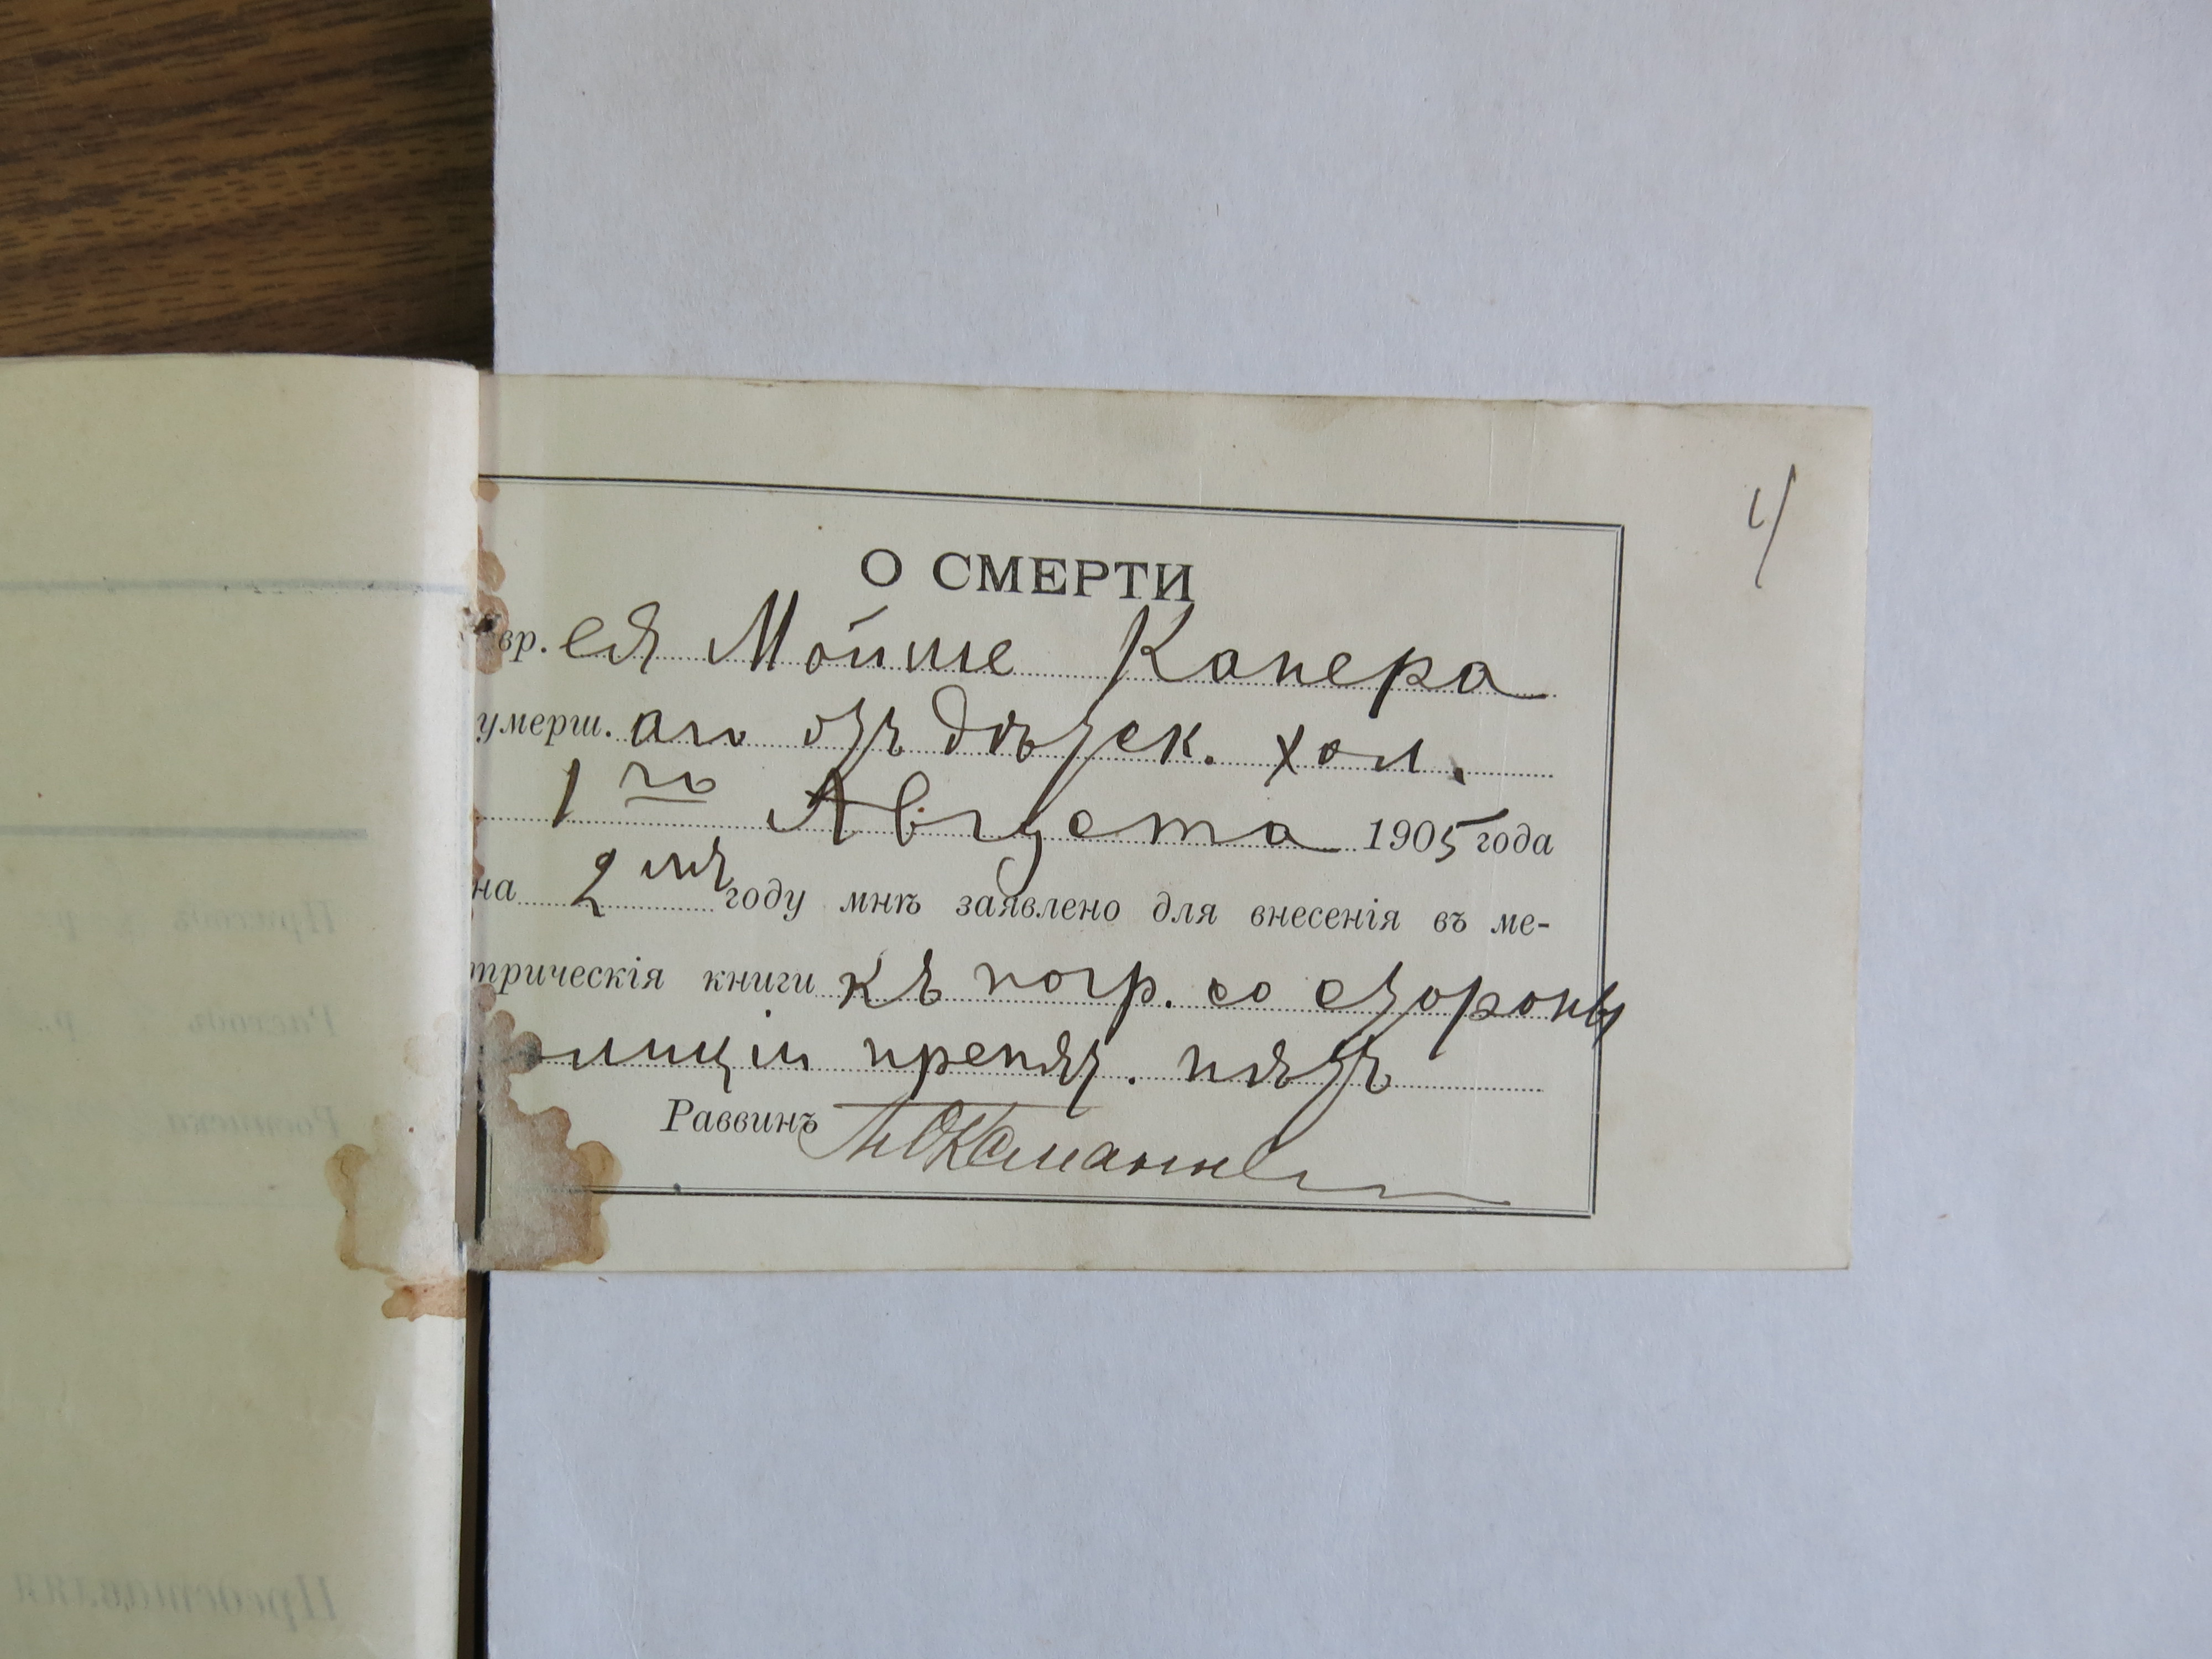 4
О СМЕРТИ
вр. ея Мойше Капера
умерш. аго отъ дѣтск. хол.
1го Августа 1905 года
на 2мъ году мнѣ заявлено для внесенія въ ме-
трическія книги къ погр. со стороны
олиціи препят. нѣтъ
Раввинъ
Приходъ р.
Расходъ р.
Росписка
Представляя